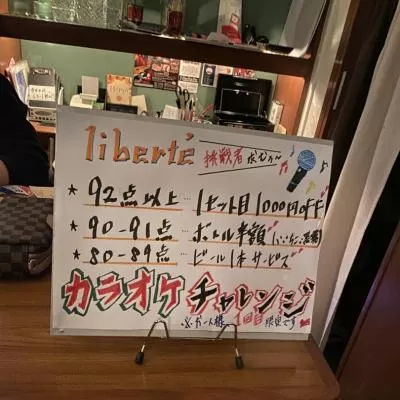 liberté 挑戦者
★ 92点以上 … 1セット目1000円OFF
★ 90-91点 … ボトル半額
★ 80-89点 … ビール1本サービス
カラオケチャレンジ
※お一人様1回目限定です